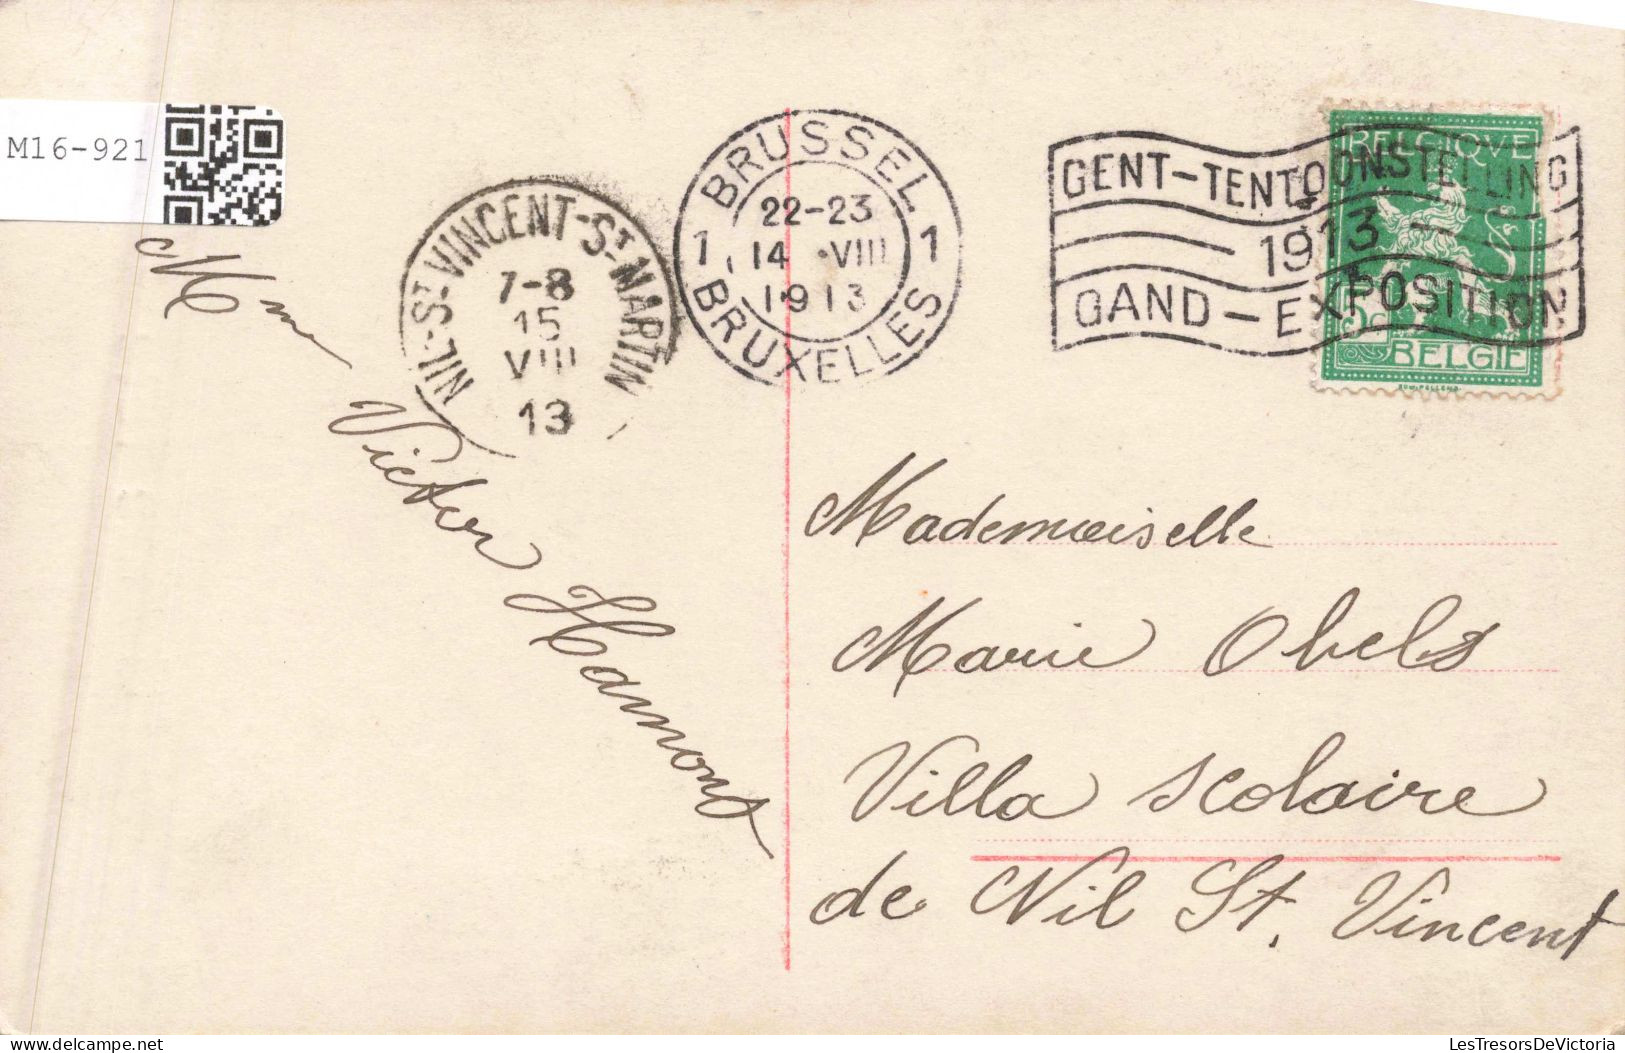 M16-921
NIL-ST-VINCENT-ST-MARTIN
7-8
15
VIII
13
BRUSSEL
1 1
22-23
14 VIII
1913
BRUXELLES
GENT-TENTOONSTELLING
1913
GAND-EXPOSITION
BELGIQVE
5c
BELGIË
Mme Victor Hamont
Mademoiselle
Marie Obels
Villa scolaire
de Nil St. Vincent
LesTresorsDeVictoria
delcampe.net